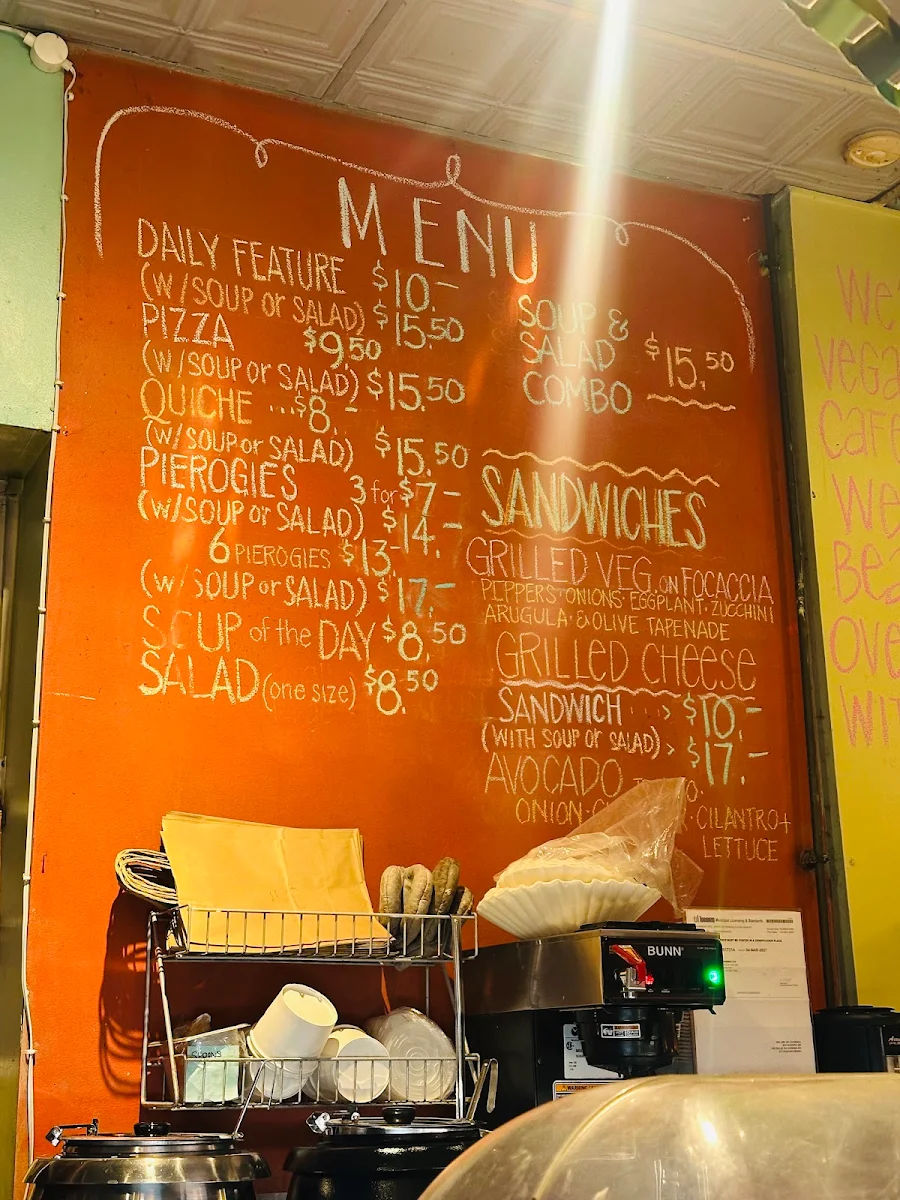 MENU
DAILY FEATURE $10.-
(W/SOUP OR SALAD) $15.50
PIZZA $9.50
(W/SOUP or SALAD) $15.50
QUICHE ...$8.-
(W/SOUP or SALAD) $15.50
PIEROGIES 3 for $7-
(W/SOUP or SALAD) $14.-
6 PIEROGIES $13.-
(W/SOUP or SALAD) $17.-
SOUP of the DAY $8.50
SALAD (one size) $8.50
SOUP &
SALAD $15.50
COMBO
SANDWICHES
GRILLED VEG. ON FOCACCIA
PEPPERS·ONIONS·EGGPLANT·ZUCCHINI
ARUGULA·&OLIVE TAPENADE
GRILLED CHEESE
SANDWICH ...> $10.-
(WITH SOUP OR SALAD)> $17.-
AVOCADO
ONION· ·CILANTRO+
LETTUCE
We
vega
Cafe
We
Bea
Ove
Wit
SPOONS
BUNN